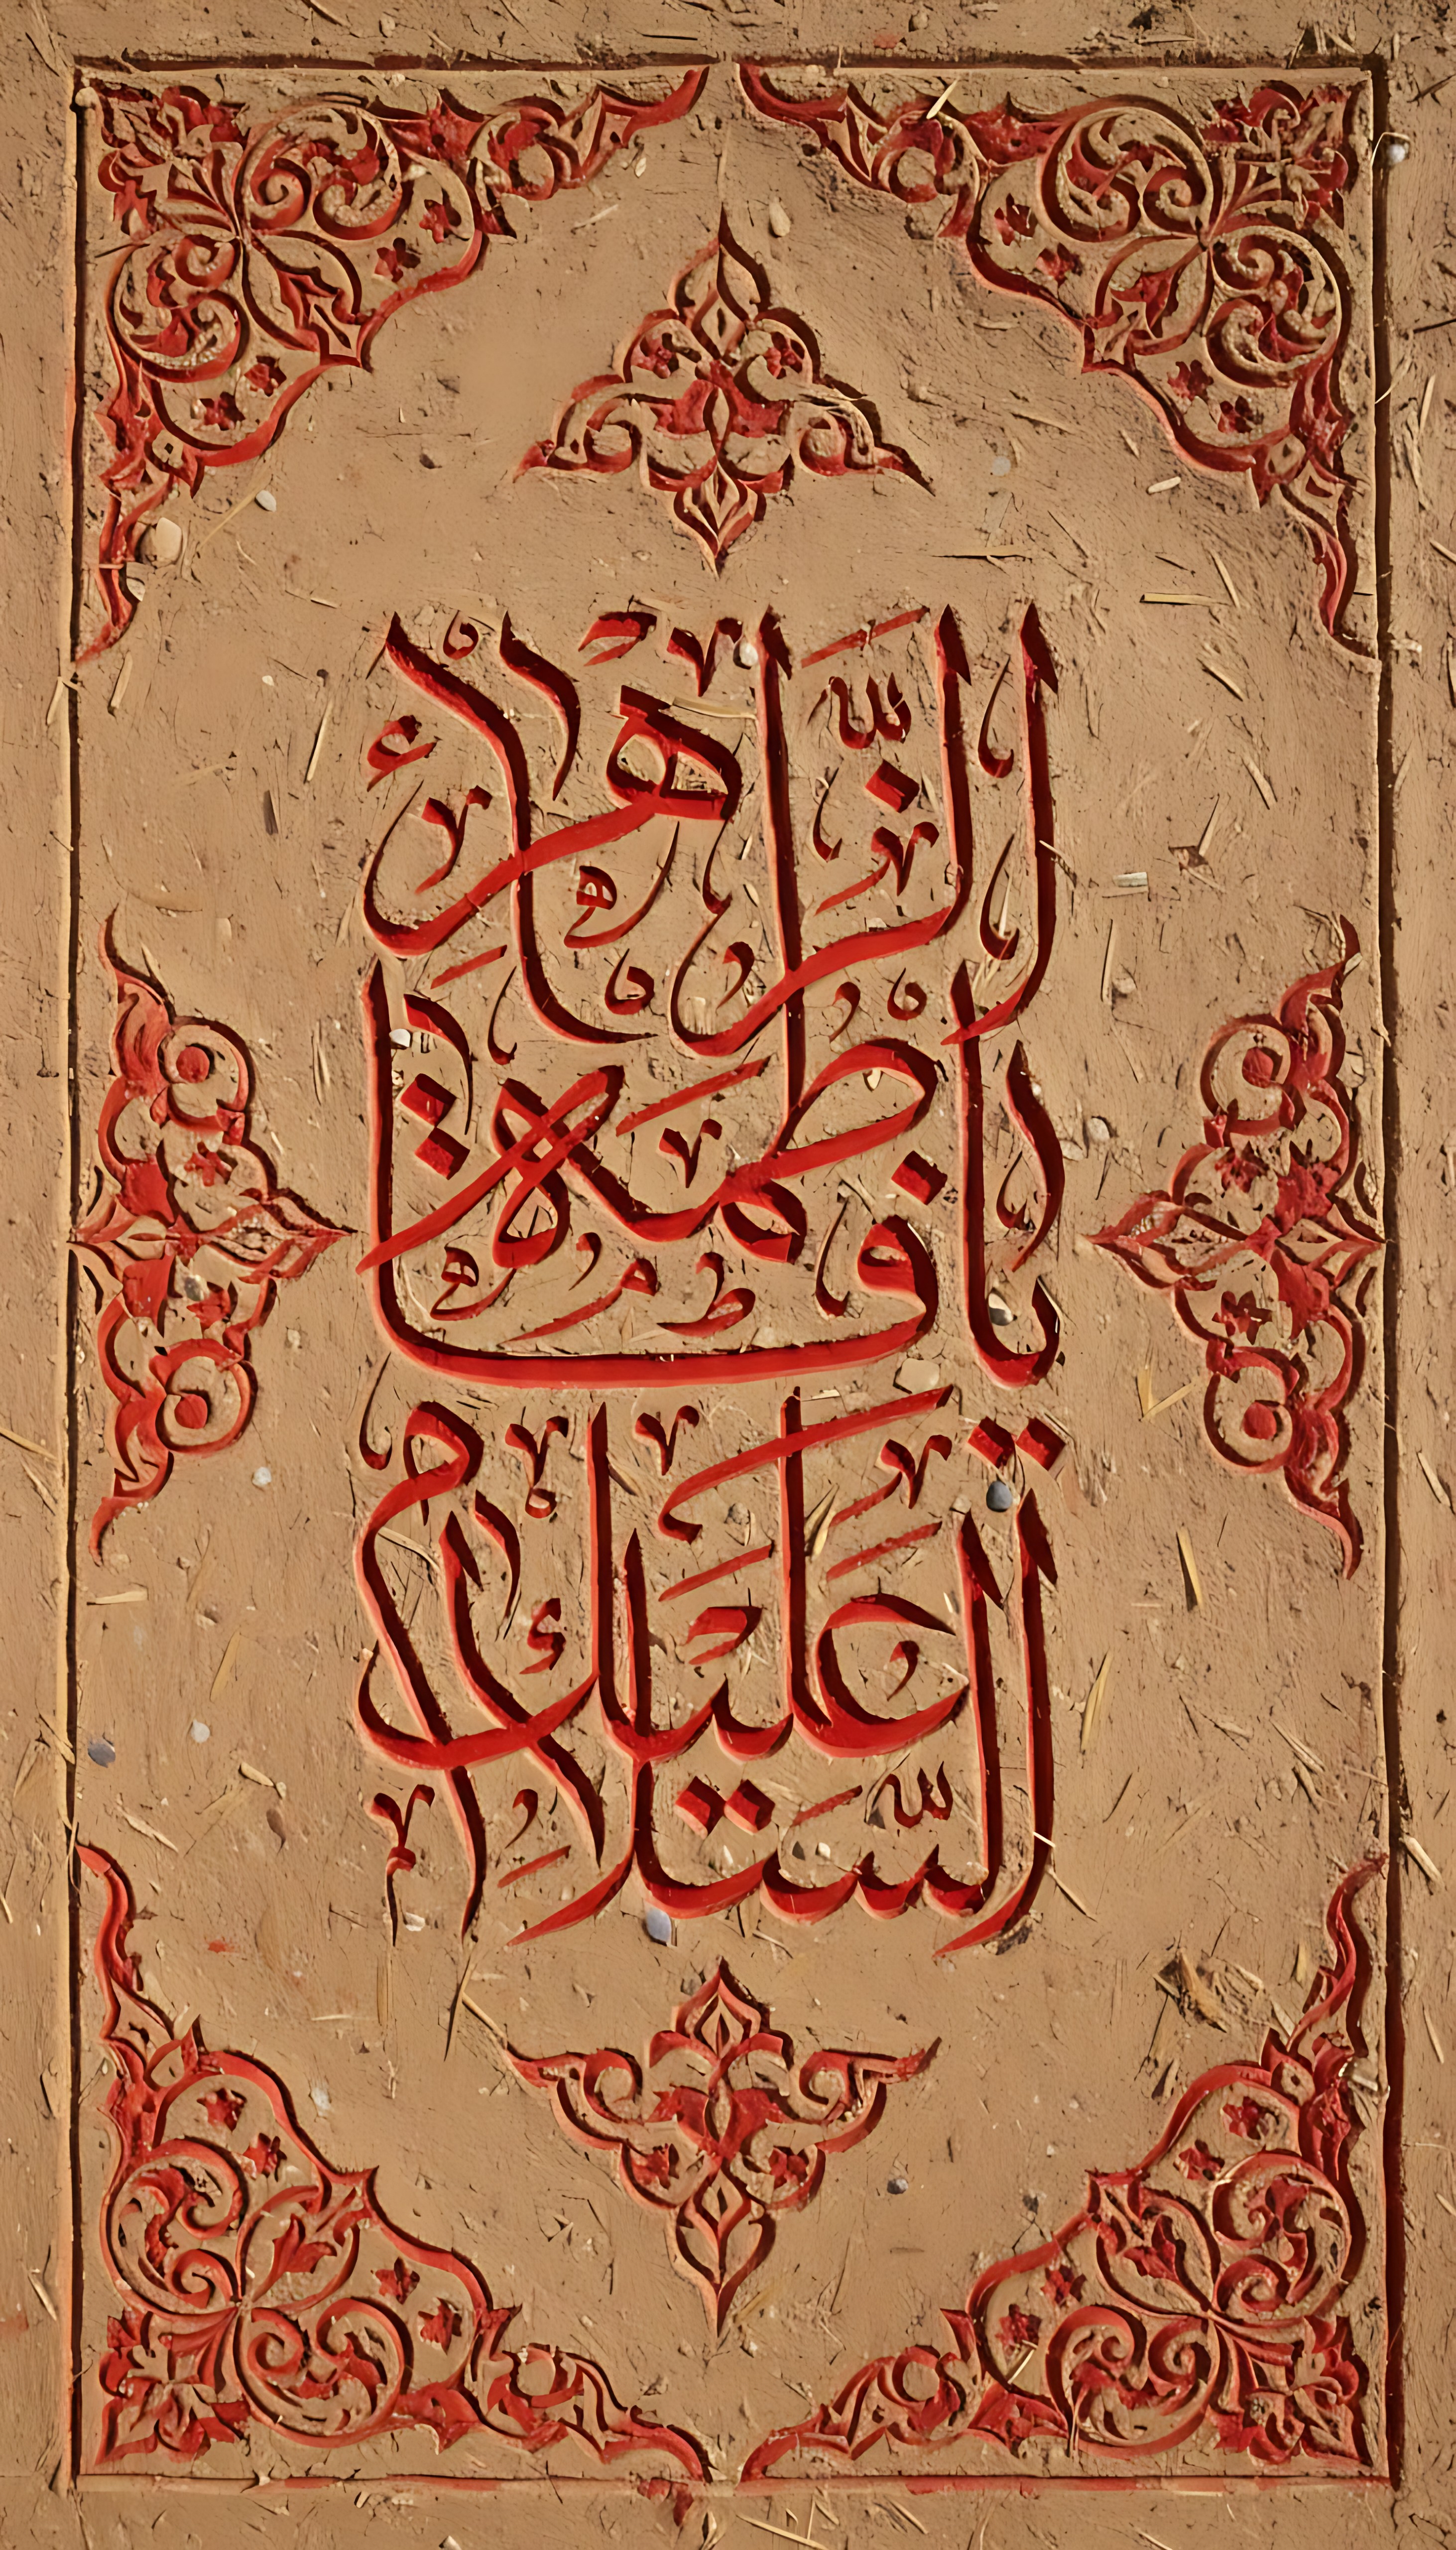 السلام عليك
يا فاطمة
الزهراء